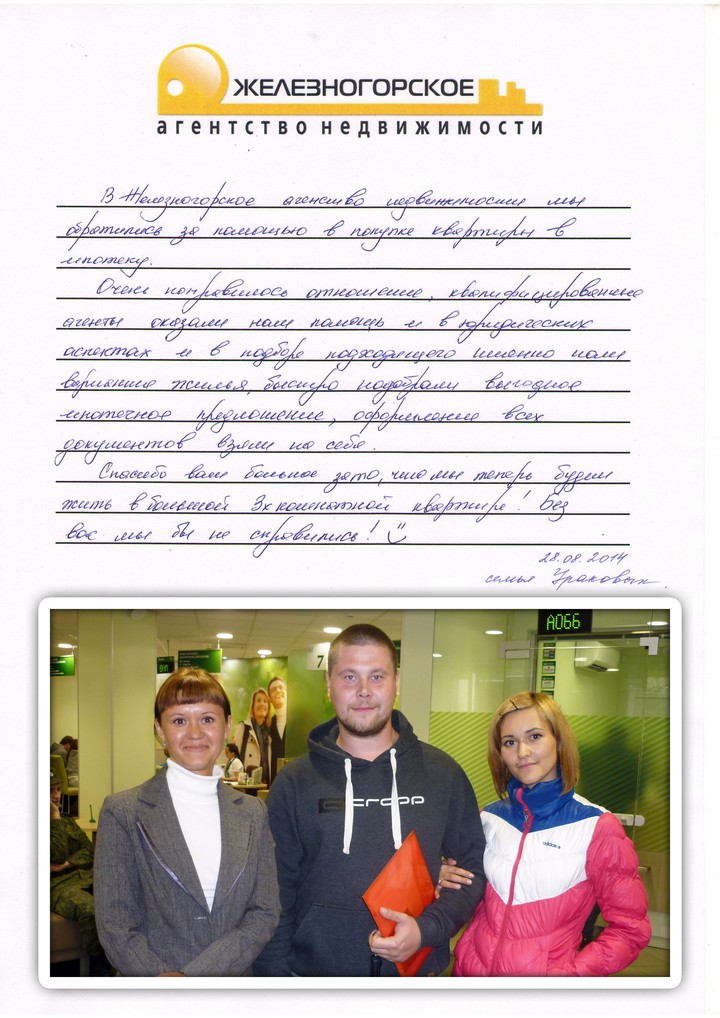 ЖЕЛЕЗНОГОРСКОЕ
агентство недвижимости
В Железногорское агенство недвижимости мы
обратились за помощью в покупке квартиры в
ипотеку.
Очень понравилось отношение, квалифицированные
агенты оказали нам помощь и в юридических
аспектах и в подборе подходящего именно нам
варианта жилья, быстро подобрали выгодное
ипотечное предложение, оформление всех
документов взяли на себя.
Спасибо вам большое за то, что мы теперь будем
жить в большой 3х комнатной квартире! Без
вас мы бы не справились!
28.08.2014
семья
A066
7
cropp
adidas